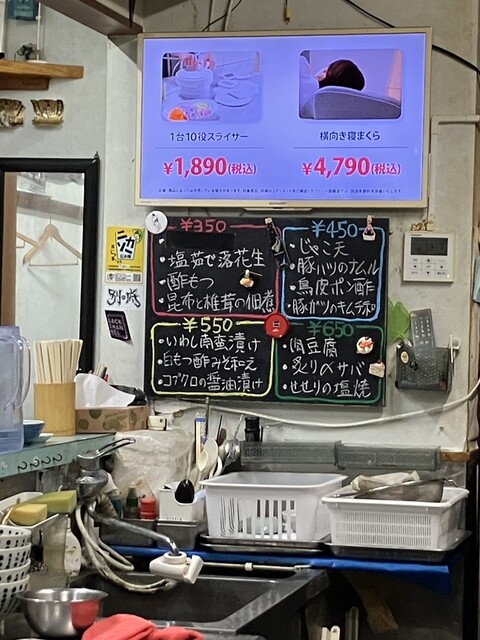 1台10役スライサー
¥1,890(税込)
横向き寝まくら
¥4,790(税込)
¥350
・塩茹で落花生
・酢もつ
・昆布と椎茸の佃煮
¥450
・じゃこ天
・豚ハツのナムル
・鳥皮ポン酢
・豚ガツのキムチ和
¥550
・いわし南蛮漬け
・白もつ酢みそ和え
・コブクロの醤油漬け
¥650
・肉豆腐
・炙り〆サバ
・せせりの塩焼